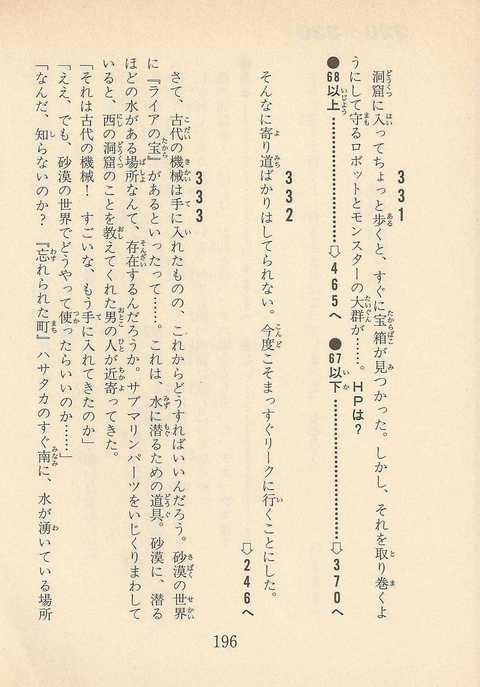 331
洞窟に入ってちょっと歩くと、すぐに宝箱が見つかった。しかし、それを取り巻くよ
うにして守るロボットとモンスターの大群が……。HPは?
●68以上……………………⇨465へ ●67以下……………………⇨370へ
332
そんなに寄り道ばかりはしてられない。今度こそまっすぐリークに行くことにした。
⇨246へ
333
さて、古代の機械は手に入れたものの、これからどうすればいいんだろう。砂漠の世界
に『ライアの宝』があるといったって……。これは、水に潜るための道具。砂漠に、潜る
ほどの水がある場所なんて、存在するんだろうか。サブマリンパーツをいじくりまわして
いると、西の洞窟のことを教えてくれた男の人が近寄ってきた。
「それは古代の機械! すごいな、もう手に入れてきたのか」
「ええ、でも、砂漠の世界でどうやって使ったらいいのか……」
「なんだ、知らないのか? 『忘れられた町』ハサタカのすぐ南に、水が湧いている場所
196